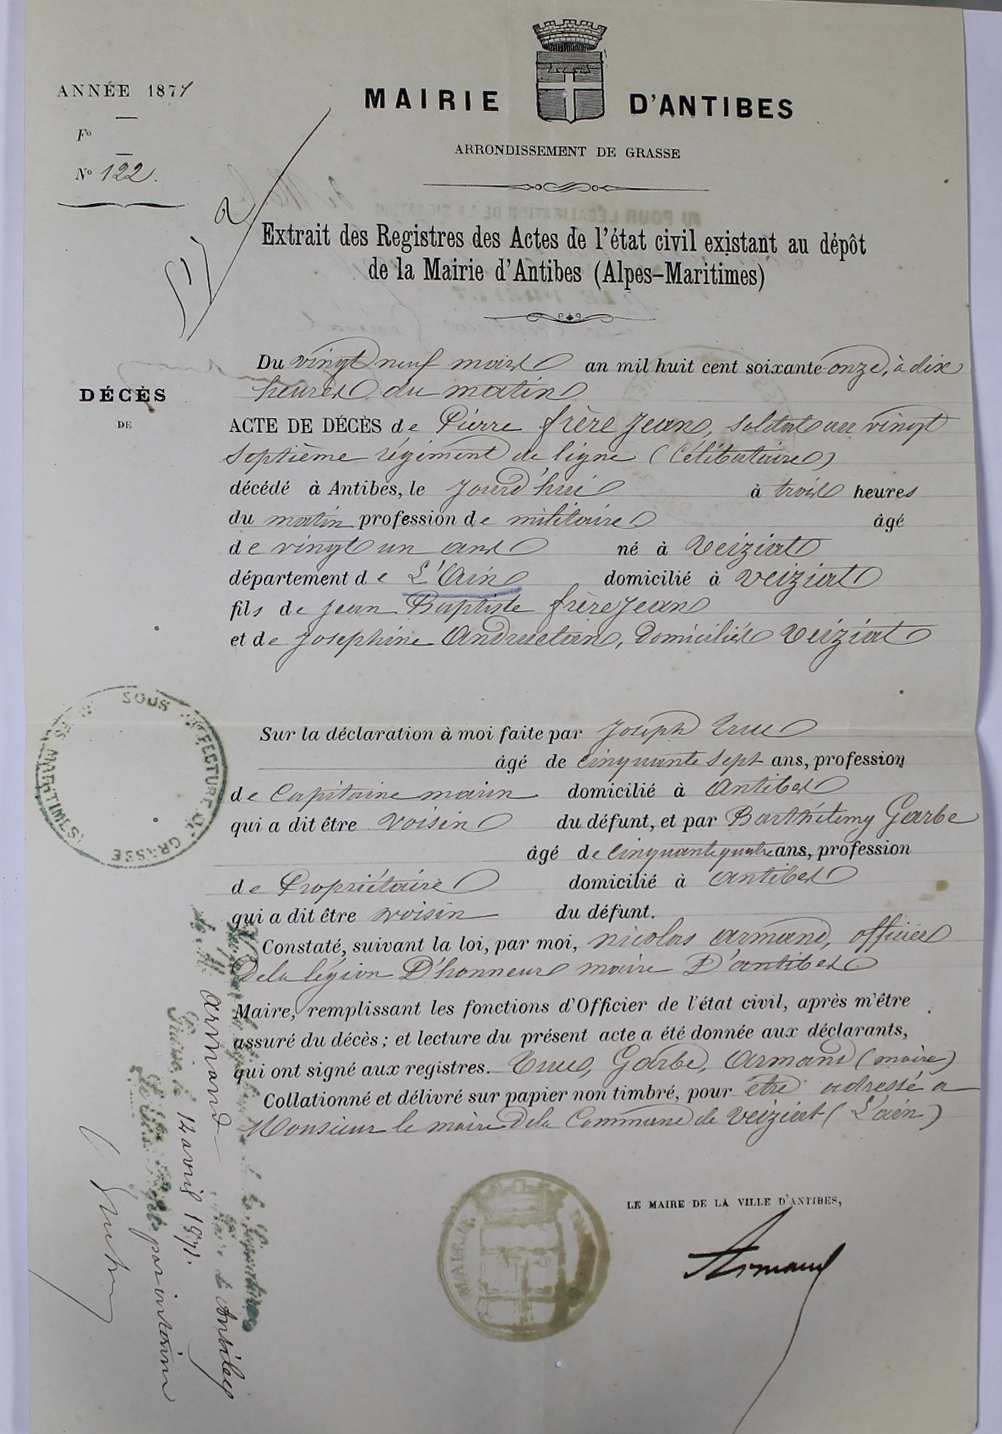 ANNÉE 1871
Fº
Nº 122.
MAIRIE D'ANTIBES
ARRONDISSEMENT DE GRASSE
Extrait des Registres des Actes de l'état civil existant au dépôt
de la Mairie d'Antibes (Alpes-Maritimes)
DÉCÈS
DE
Du vingt neuf mars an mil huit cent soixante onze, à dix
heures du matin
ACTE DE DÉCÈS de Pierre frère Jean, soldat au vingt
septième régiment de ligne (célibataire)
décédé à Antibes, le jourd'hui à trois heures
du matin profession de militaire âgé
de vingt un ans né à Veiziat
département de L'Ain domicilié à Veiziat
fils de Jean Baptiste frère Jean
et de Josephine, domiciliés Veiziat
Sur la déclaration à moi faite par Joseph
âgé de cinquante sept ans, profession
de Capitaine marin domicilié à Antibes
qui a dit être voisin du défunt, et par Barthélemy Garbe
âgé de cinquante quatre ans, profession
de Propriétaire domicilié à antibes
qui a dit être voisin du défunt.
Constaté, suivant la loi, par moi, nicolas armand, officier
De la légion D'honneur maire D'antibes
Maire, remplissant les fonctions d'Officier de l'état civil, après m'être
assuré du décès; et lecture du présent acte a été donnée aux déclarants,
qui ont signé aux registres. Garbe, armand (maire)
Collationné et délivré sur papier non timbré, pour être adressé a
Monsieur le maire De la Commune de Veiziat (L'ain)
LE MAIRE DE LA VILLE D'ANTIBES,
Armand
SOUS PRÉFECTURE DE GRASSE
MARITIMES
MAIRIE
armand
Maire d'Antibes
12 avril 1871
par intérim